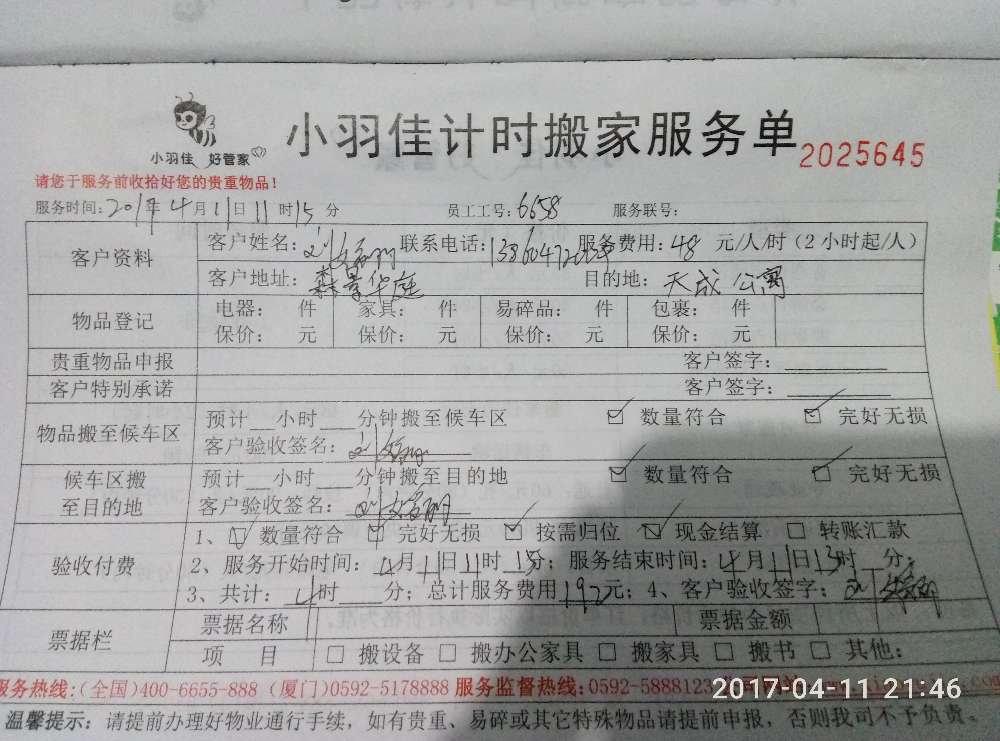 小羽佳 好管家
小羽佳计时搬家服务单 2025645
请您于服务前收拾好您的贵重物品!
服务时间:2017年4月11日11时15分 员工工号:6658 服务联号:
客户资料 客户姓名: 联系电话: 服务费用:48 元/人/时(2小时起/人)
客户地址:森景华庭 目的地:天成公寓
物品登记 电器: 件 家具: 件 易碎品: 件 包裹: 件
保价: 元 保价: 元 保价: 元 保价: 元
贵重物品申报 客户签字:
客户特别承诺 客户签字:
物品搬至候车区 预计__小时___分钟搬至候车区 数量符合 完好无损
客户验收签名:
候车区搬至目的地 预计__小时___分钟搬至目的地 数量符合 完好无损
客户验收签名:
验收付费 1、数量符合 完好无损 按需归位 现金结算 转账汇款
2、服务开始时间:4月11日11时15分;服务结束时间:4月11日13时 分;
3、共计:4时___分;总计服务费用192元;4、客户验收签字:
票据栏 票据名称 票据金额
项 目 搬设备 搬办公家具 搬家具 搬书 其他:
服务热线:(全国)400-6655-888 (厦门)0592-5178888 服务监督热线:0592-5888123
2017-04-11 21:46
温馨提示: 请提前办理好物业通行手续,如有贵重、易碎或其它特殊物品请提前申报,否则我司不予负责。